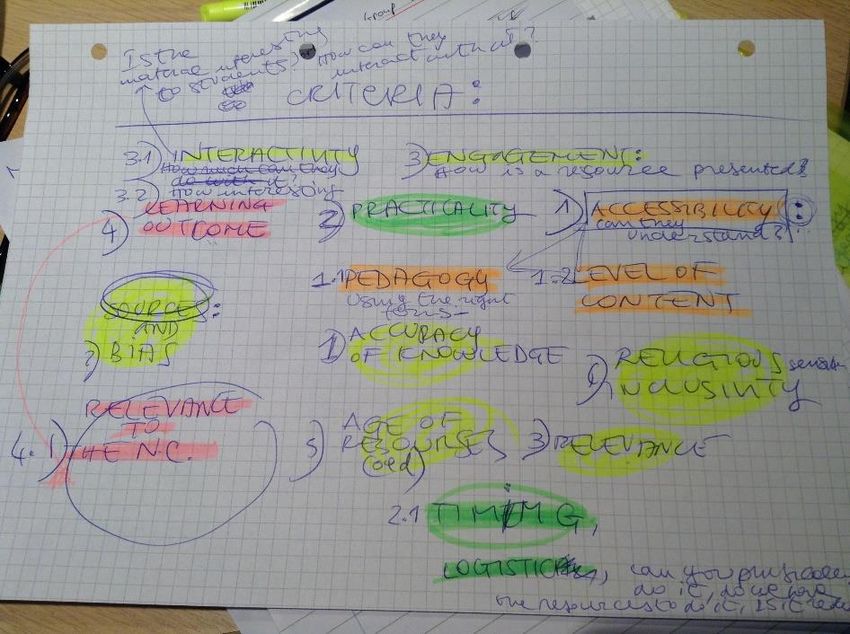 Group
Is the
material interesting
to students? How can they
interact with it?
CRITERIA:
3.1) INTERACTIVITY
How much can they
do with it
3) ENGAGEMENT:
How is a resource presented?
3.2) How interesting
4) LEARNING
OUTCOME
2) PRACTICALITY
1) ACCESSIBILITY:
can they
understand?
1.1 PEDAGOGY
Using the right
1.2 LEVEL OF
CONTENT
SOURCES:
AND
2) BIAS
1) ACCURACY
OF KNOWLEDGE
RELIGIOUS
INCLUSIVITY
4.1) RELEVANCE
TO
THE N.C.
5) AGE OF
RESOURSES
(old)
3) RELEVANCE
2.1 TIMING,
LOGISTICS, can you physically
do it, do we have
the resources to do it, is it